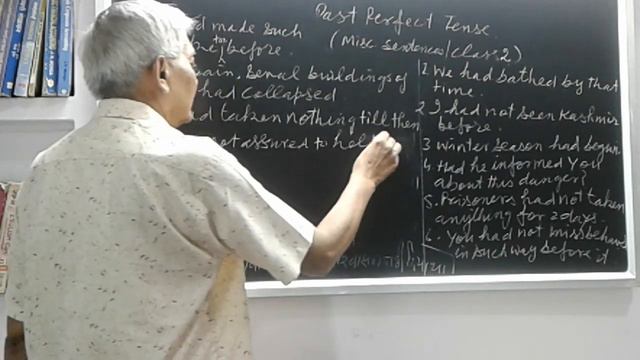 Past Perfect Tense
(Misc sentences/class 2)
d made such
before.
ain, senal buildings of
had collapsed
ad taken nothing till then
not assured to hel
1 We had bathed by that
time.
2 I had not seen Kashmir
before.
3 Winter season had begun
4 Had he informed you
about this danger?
5. Prisoners had not taken
anything for 2 days.
6. You had not missbehave
in such way before it